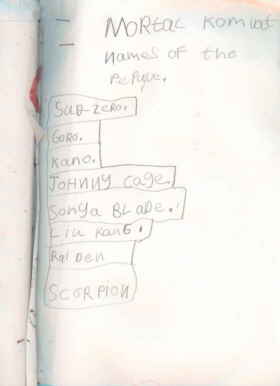 MORtal Kombat
names of the
PePople.
SUB-ZERO.
GORO.
KANO.
JOHNNY cage.
Sonya BLADE.
LIU KANG.
RaiDen
SCORPION